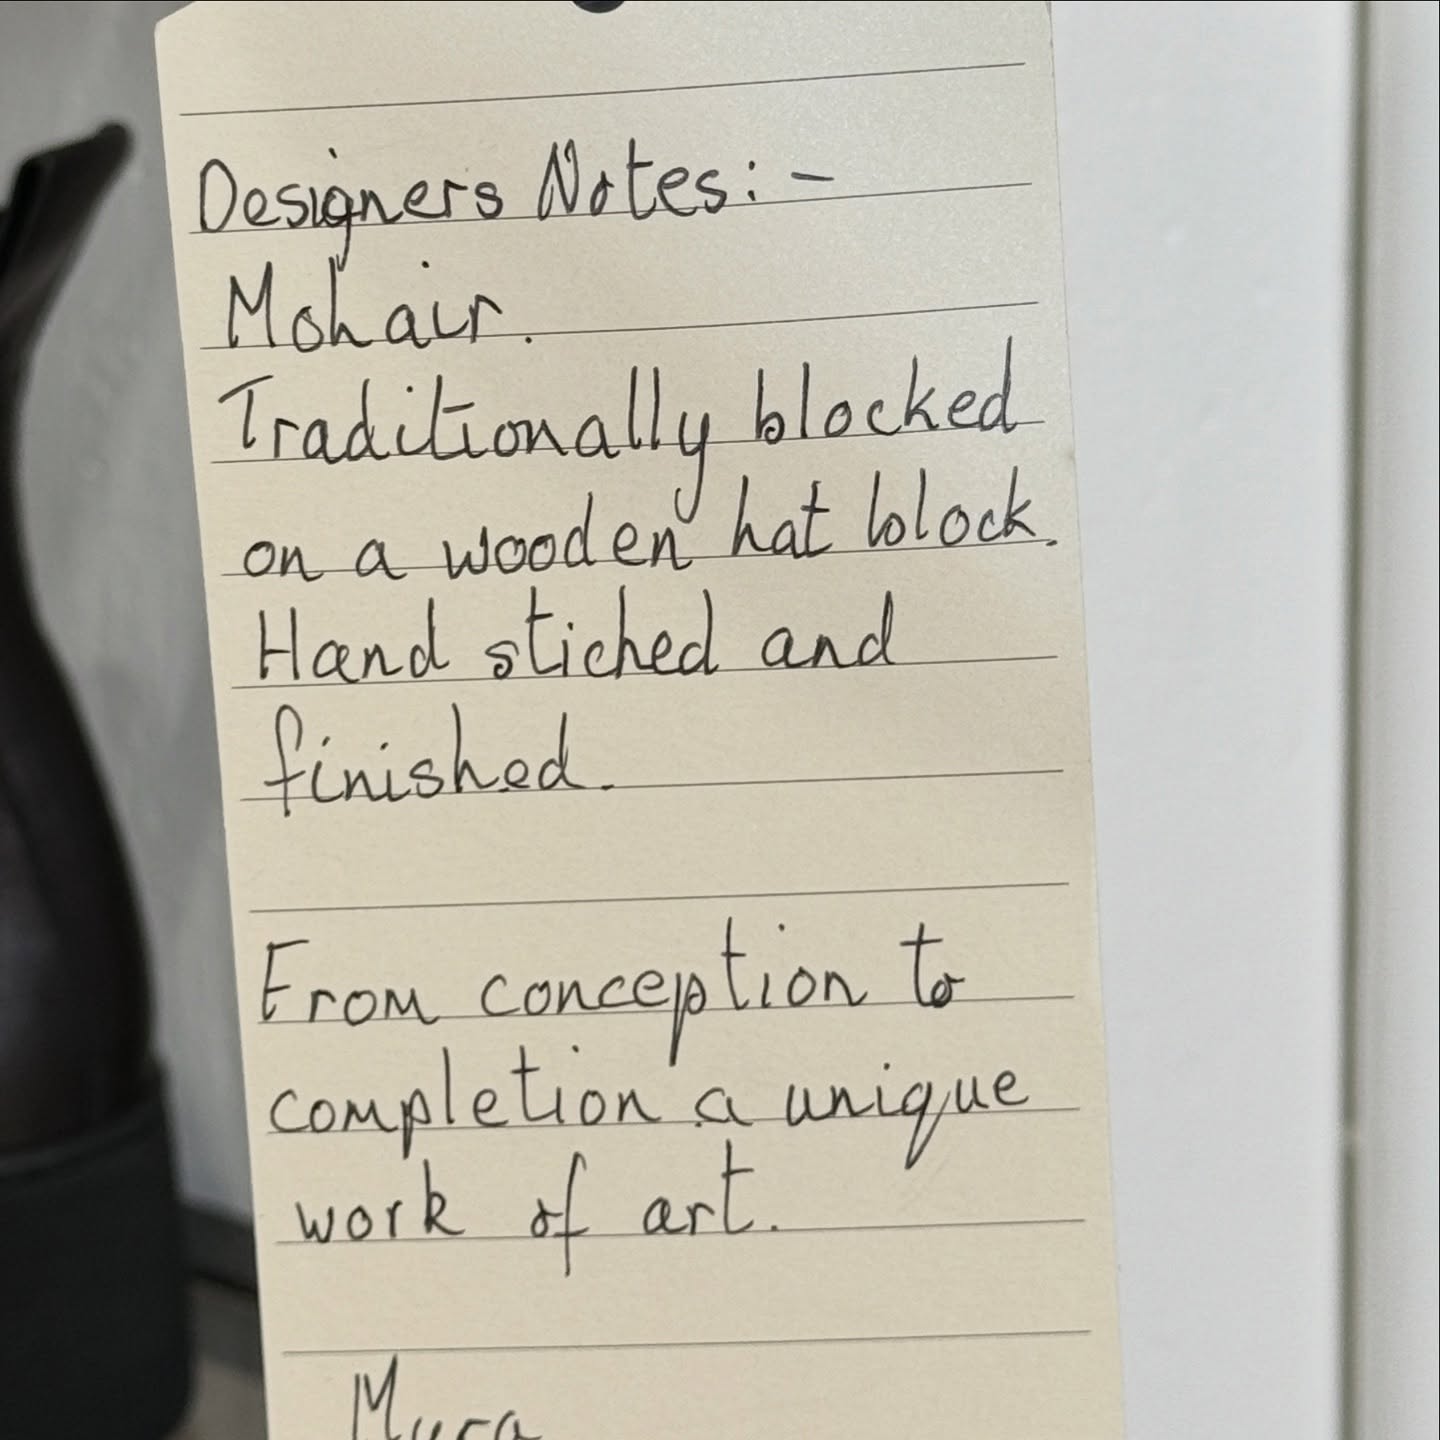 Designers Notes: -
Mohair.
Traditionally blocked
on a wooden hat block.
Hand stiched and
finished.
From conception to
completion a unique
work of art.